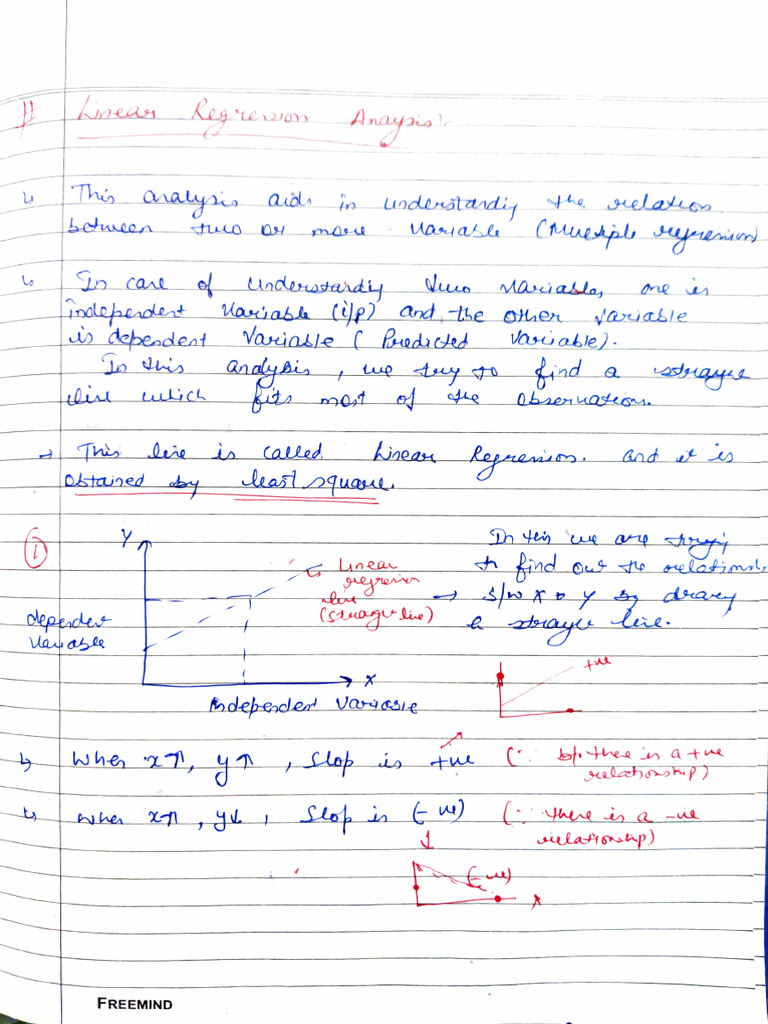 # Linear Regression Anaysis:-
↳ This analysis aids in understandig the relation
between two or more variable (Multiple regression)
↳ In case of understandig two variables, one is
independent variable (i/p) and the other variable
is dependent variable (Predicted variable).
In this analysis, we try to find a straigue
line which fits most of the observation.
→ This line is called Linear Regression. and it is
obtained by least square.
①
Y
dependent
variable
Linear
regression
line
(straigue line)
X
Independent Variable
In this we are tryig
to find out the relationsh
→ b/w X & Y by drawy
a straigue line.
+ve
↳ When x↑, y↑, Slop is +ve (∵ b/c there is a +ve
relationship)
↳ when x↑, y↓, Slop is (-ve) (∵ there is a -ve
relationship)
(-ve)
X
FREEMIND